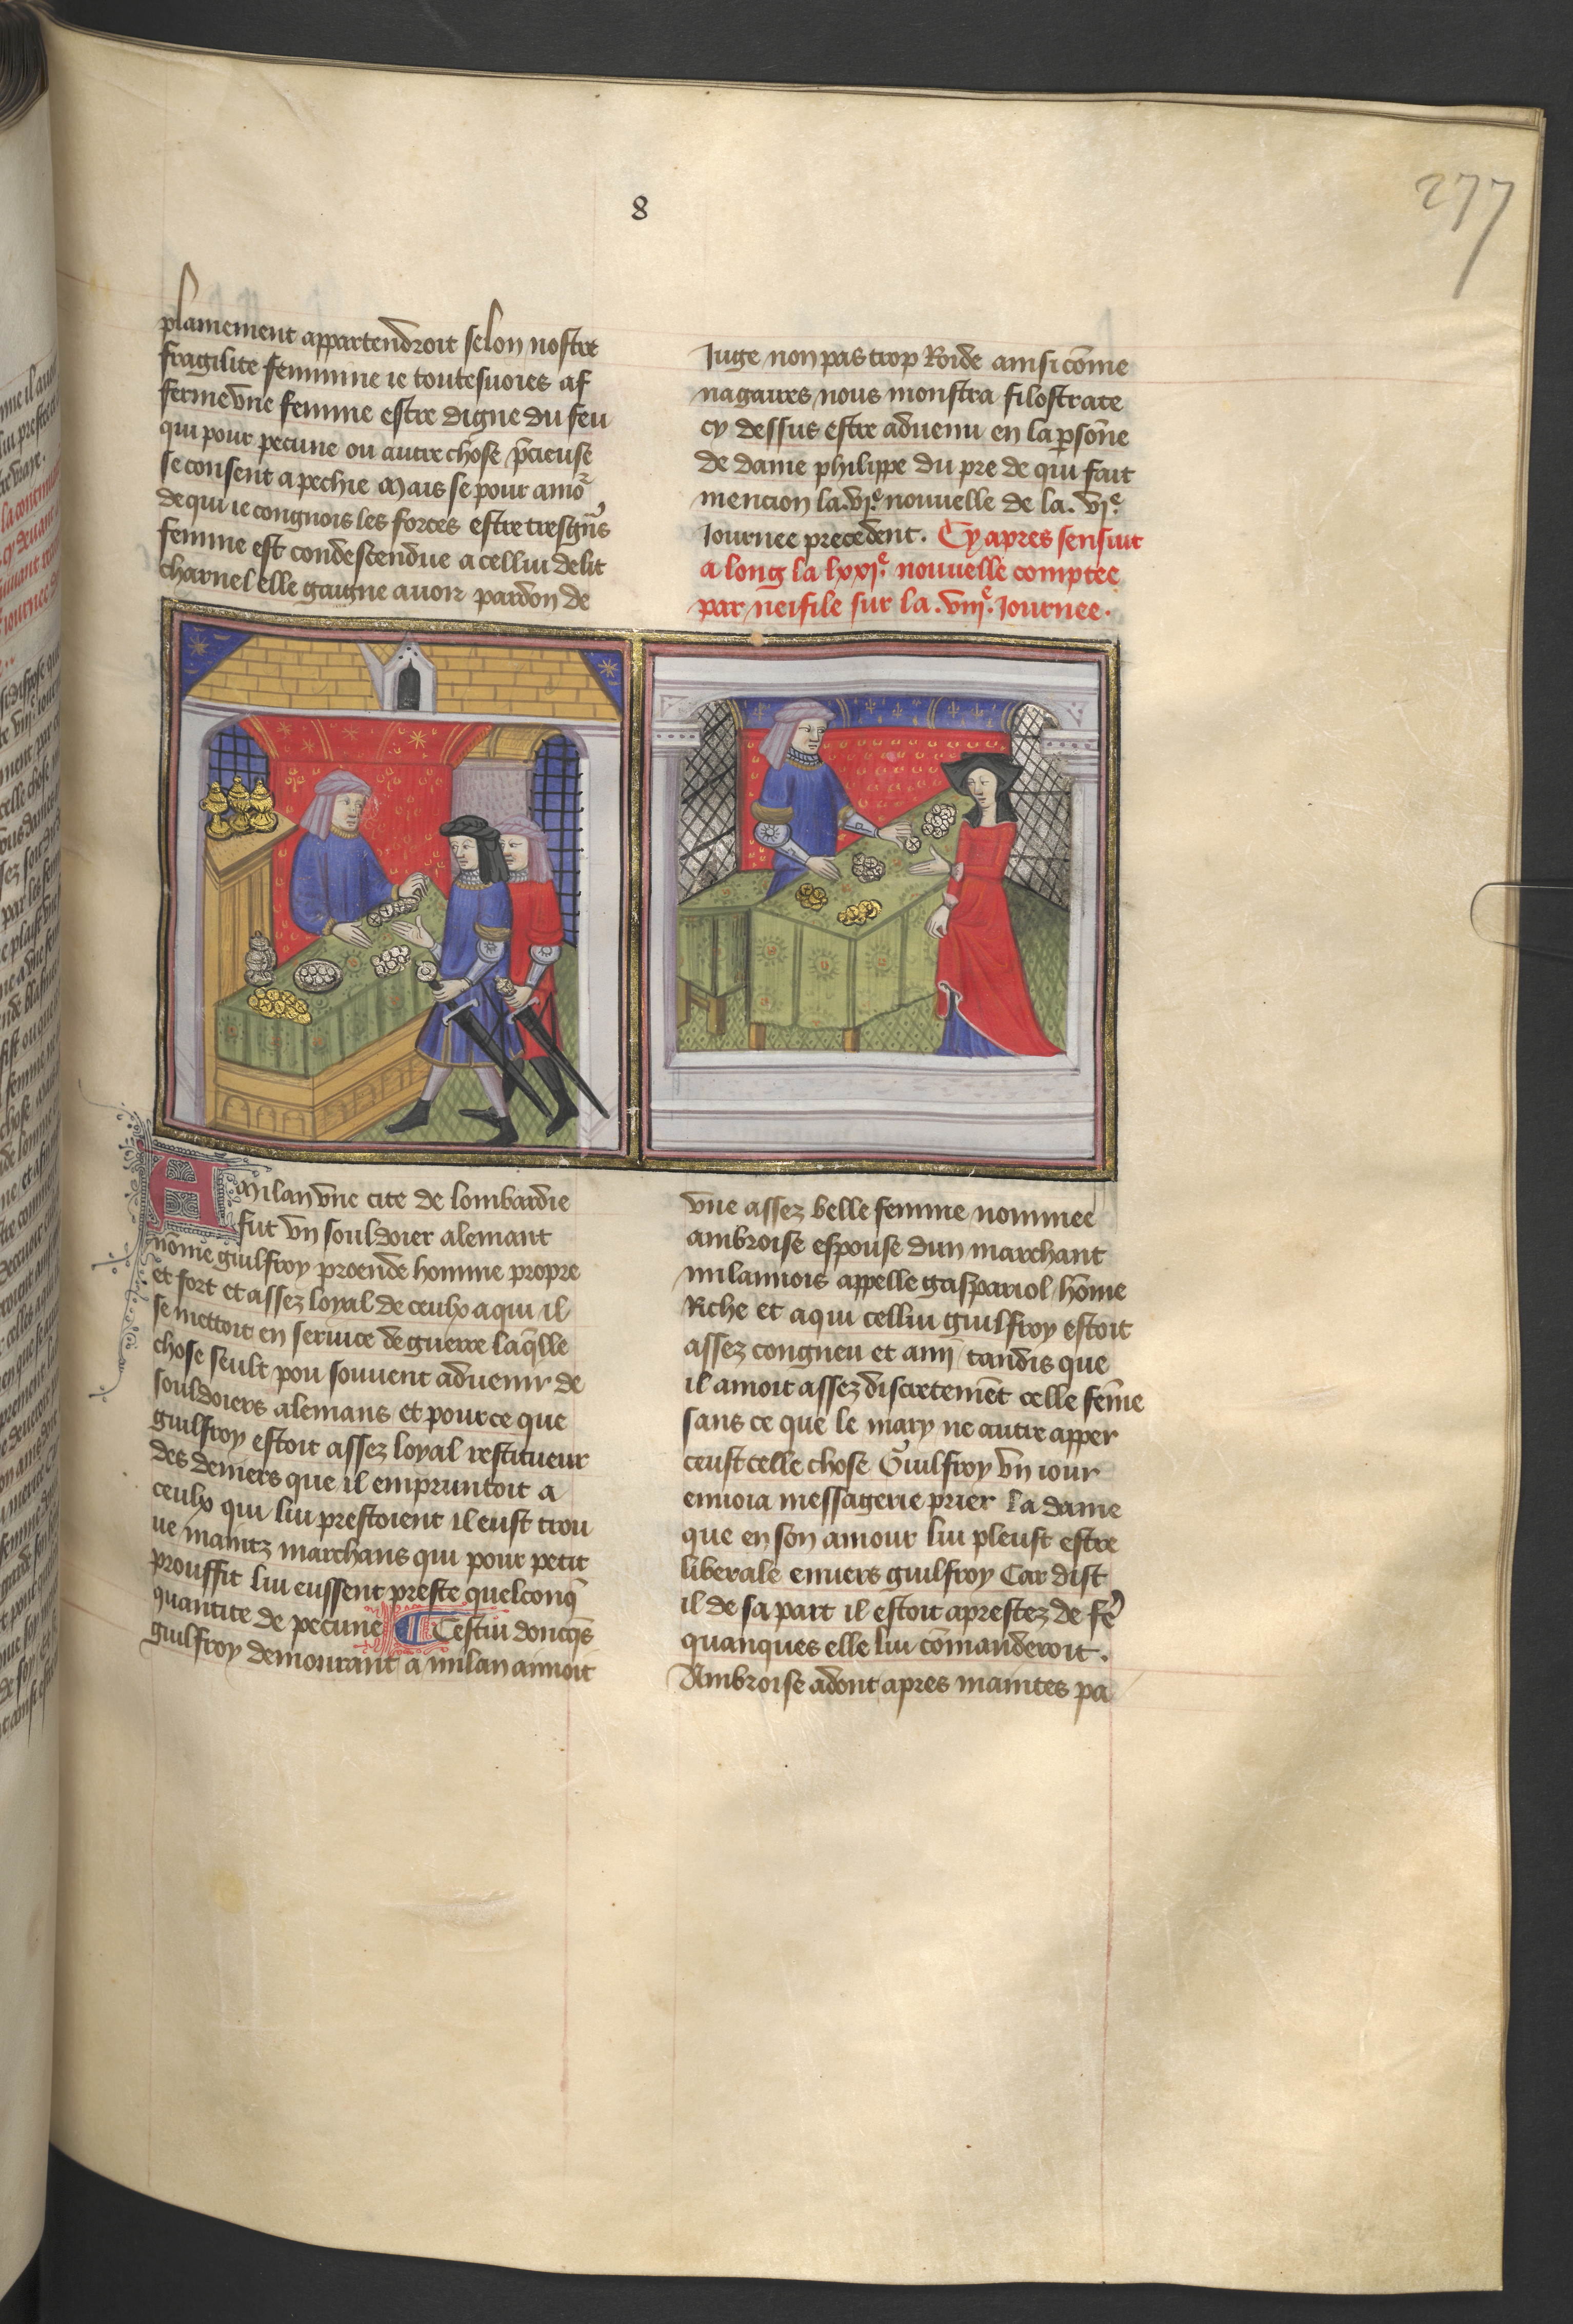 277
8
plainement appartendroit selon nostre
fragilite feminine ie toutesuoies af
ferme vne femme estre digne du feu
qui pour pecune ou autre chose p̄cieuse
se consent a pechie Mais se pour amo
de qui ie congnois les forces estre tresgn̄s
femme est condescendue a cellui delit
charnel elle gaigne auoir pardon de
Juge non pas trop Roide ainsi cōme
nagaires nous monstra filostrate
cy dessus estre aduenu en la psōne
de dame philippe du pre de qui fait
mencion la .vije. nouuelle de la .vje.
Journee precedent. Cy apres sensuit
a long la lxxje. nouuelle comptee
par neifile sur la .viije. Journee.
A Milan vne cite de lombardie
fut vn souldoier alemant
nōme guilfroy proende homme propre
et fort et assez loyal de ceulx a qui il
se mettoit en seruice de guerre laq̄lle
chose seult pou souuent aduenir de
souldoiers alemans et pource que
guilfroy estoit assez loyal restitueur
des deniers que il empruntoit a
ceulx qui lui prestoient il eust trou
ue maintz marchans qui pour petit
prouffit lui eussent preste quelconq̄
quantite de pecune Cestui doncq̄s
guilfroy demourant a milan aimoit
vne assez belle femme nommee
ambroise espouse dun marchant
milannois appelle gaspariol hōme
Riche et a qui cellui guilfroy estoit
assez congneu et amj tandis que
il amoit assez discretemēt celle fēme
sans ce que le mary ne autre apper
ceust celle chose Guilfroy vn iour
enuoia messagerie prier la dame
que en son amour lui pleust estre
liberale enuers guilfroy Car dist
il de sa part il estoit aprestez de fe
quanques elle lui cōmanderoit.
Ambroise adont apres maintes pa